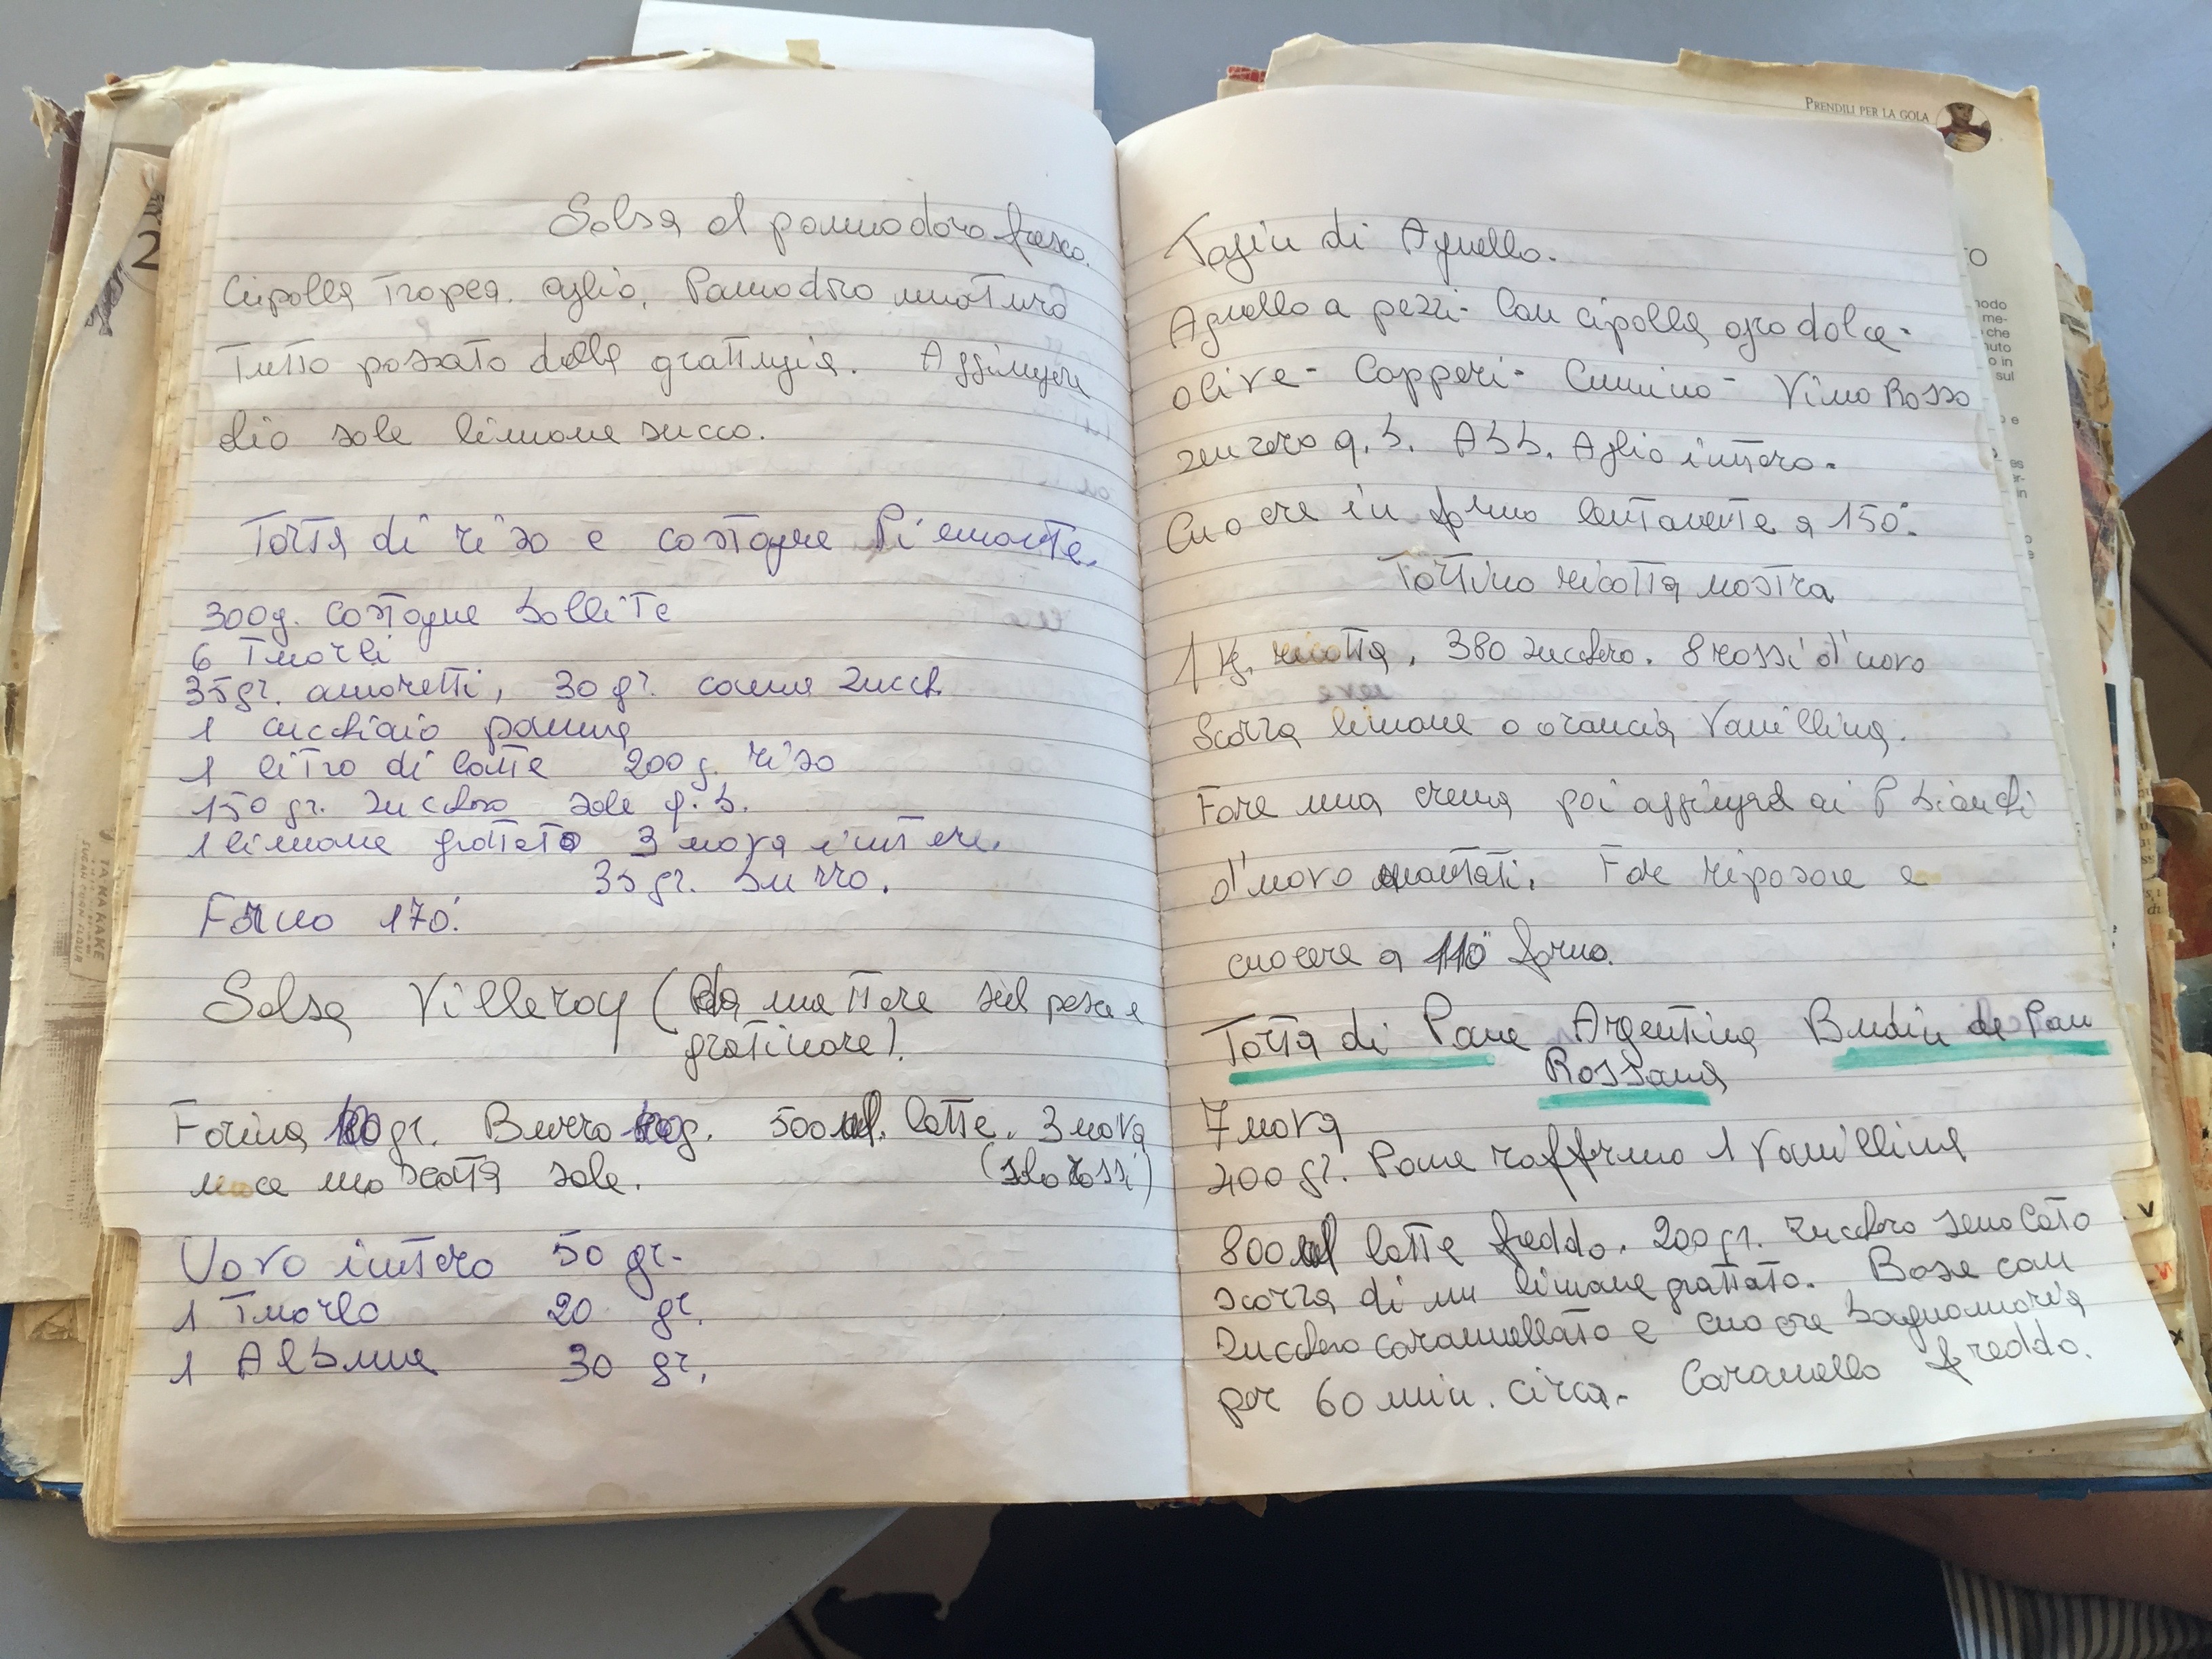 Salsa al pommodoro fresco.
Cipolla Tropea. aglio, Pomodoro maturo
Tutto passato dalla grattugia. Aggiungere
olio sale limone succo.
Torta di riso e castagne Piemonte.
300g. castagne bollite
6 Tuorli
35gr. amaretti, 30 gr. canna zucch.
1 cucchiaio panna
1 litro di latte 200 g. riso
150 gr. zucchero sale q.b.
1 limone grattato 3 uova intere.
35 gr. burro.
Forno 170°.
Salsa Villeroy (da mettere sul pesce e
gratinare).
Farina gr. Burro g. 500 ml. latte. 3 uova
noce moscata sale. (solo rossi)
Uovo intero 50 gr.
1 Tuorlo 20 gr.
1 Albume 30 gr.
PRENDILI PER LA GOLA
Tajin di Agnello.
Agnello a pezzi - Con cipolla agrodolce -
olive - Capperi - Cumino - Vino Rosso
zenzero q.b. Abb. Aglio intero.
Cuocere in forno lentamente a 150°.
Tortino ricotta nostra
1 Kg. ricotta, 380 zucchero. 8 rossi d'uovo
Scorza limone o arancia Vanillina.
Fare una crema poi aggiungere ai bianchi
d'uovo montati. Far riposare e
cuocere a 110° forno.
Torta di Pane Argentina Budin de Pan
Rossana
7 uova
400 gr. Pane raffermo 1 Vanillina
800 ml latte freddo. 200 gr. zucchero semolato
scorza di un limone grattato. Base con
zucchero caramellato e cuocere bagnomaria
per 60 min. circa. Caramello freddo.
TAKAKAKE
SUGAR CORN FLOUR